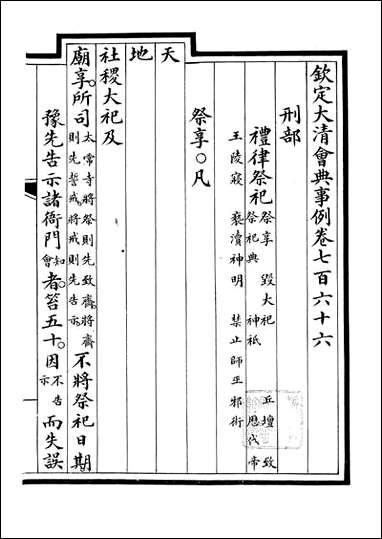 欽定大清會典事例卷七百六十六
刑部
禮律祭祀祭享 毀大祀丘壇 致祭祀典神祇 歷代帝
王陵寢 褻瀆神明 禁止師巫邪術
祭享○凡
天
地
社稷大祀及
廟享所司太常寺將祭則先致齋將齋則先誓戒將戒則先告示不將祭祀日期
豫先告示諸衙門知會者笞五十因不告示而失誤